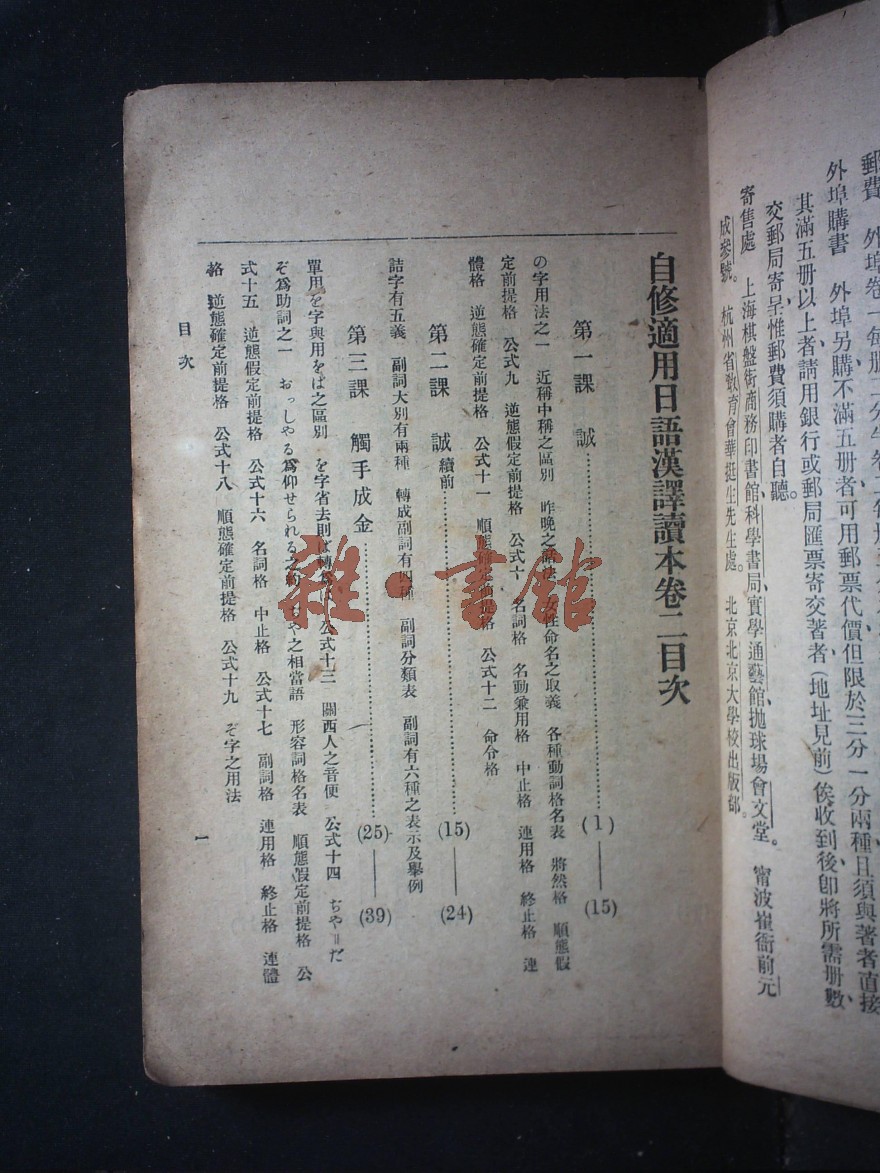 郵費 外埠卷一每册二分半卷二每册
外埠購書 外埠另購不滿五册者可用郵票代價但限於三分一分兩種且須與著者直接
其滿五册以上者請用銀行或郵局匯票寄交著者(地址見前)俟收到後卽將所需册數、
交郵局寄呈惟郵費須購者自聽。
寄售處 上海棋盤街商務印書館、科學書局、實學通藝館、拋球場會文堂。 甯波崔衙前元
成參號。 杭州省教育會華挺生先生處。 北京北京大學校出版部。
自修適用日語漢譯讀本卷二目次
第一課 誠 (1)—(15)
の字用法之一 近稱中稱之區別 昨晚之 女性命名之取義 各種動詞格名表 將然格 順態假
定前提格 公式九 逆態假定前提格 公式十 名詞格 名動兼用格 中止格 連用格 終止格 連
體格 逆態確定前提格 公式十一 順態確定前提格 公式十二 命令格
第二課 誠續前 (15)—(24)
詰字有五義 副詞大別有兩種 轉成副詞有四種 副詞分類表 副詞有六種之表示及舉例
第三課 觸手成金 (25)—(39)
單用を字與用をば之區別 を字省去則ば轉 公式十三 關西人之音便 公式十四 ぢや=だ
ぞ爲助詞之一 おっしやる爲仰せられる之約 ぢや之相當語 形容詞格名表 順態假定前提格 公
式十五 逆態假定前提格 公式十六 名詞格 中止格 公式十七 副詞格 連用格 終止格 連體
格 逆態確定前提格 公式十八 順態確定前提格 公式十九 ぞ字之用法
目次
一
雜·書館